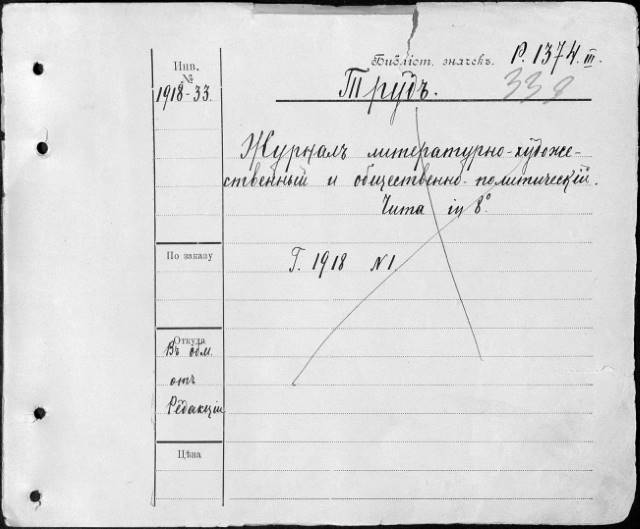 Инв.
№
1918-33.
Библіот. значекъ. Р. 1374. III.
338
Трудъ.
Журналъ литературно-художе-
ственный и общественно-политическій.
Чита in 8°
Г. 1918 N1.
По заказу
Откуда
Въ обм.
отъ
Редакціи
Цѣна